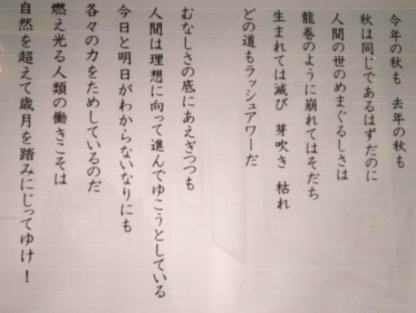 今年の秋も 去年の秋も
秋は同じであるはずだのに
人間の世のめまぐるしさは
龍巻のように崩れてはそだち
生まれては滅び 芽吹き 枯れ
どの道もラッシュアワーだ
むなしさの底にあえぎつつも
人間は理想に向って進んでゆこうとしている
今日と明日がわからないなりにも
各々の力をためしているのだ
燃え光る人類の働きこそは
自然を超えて歳月を踏みにじってゆけ！